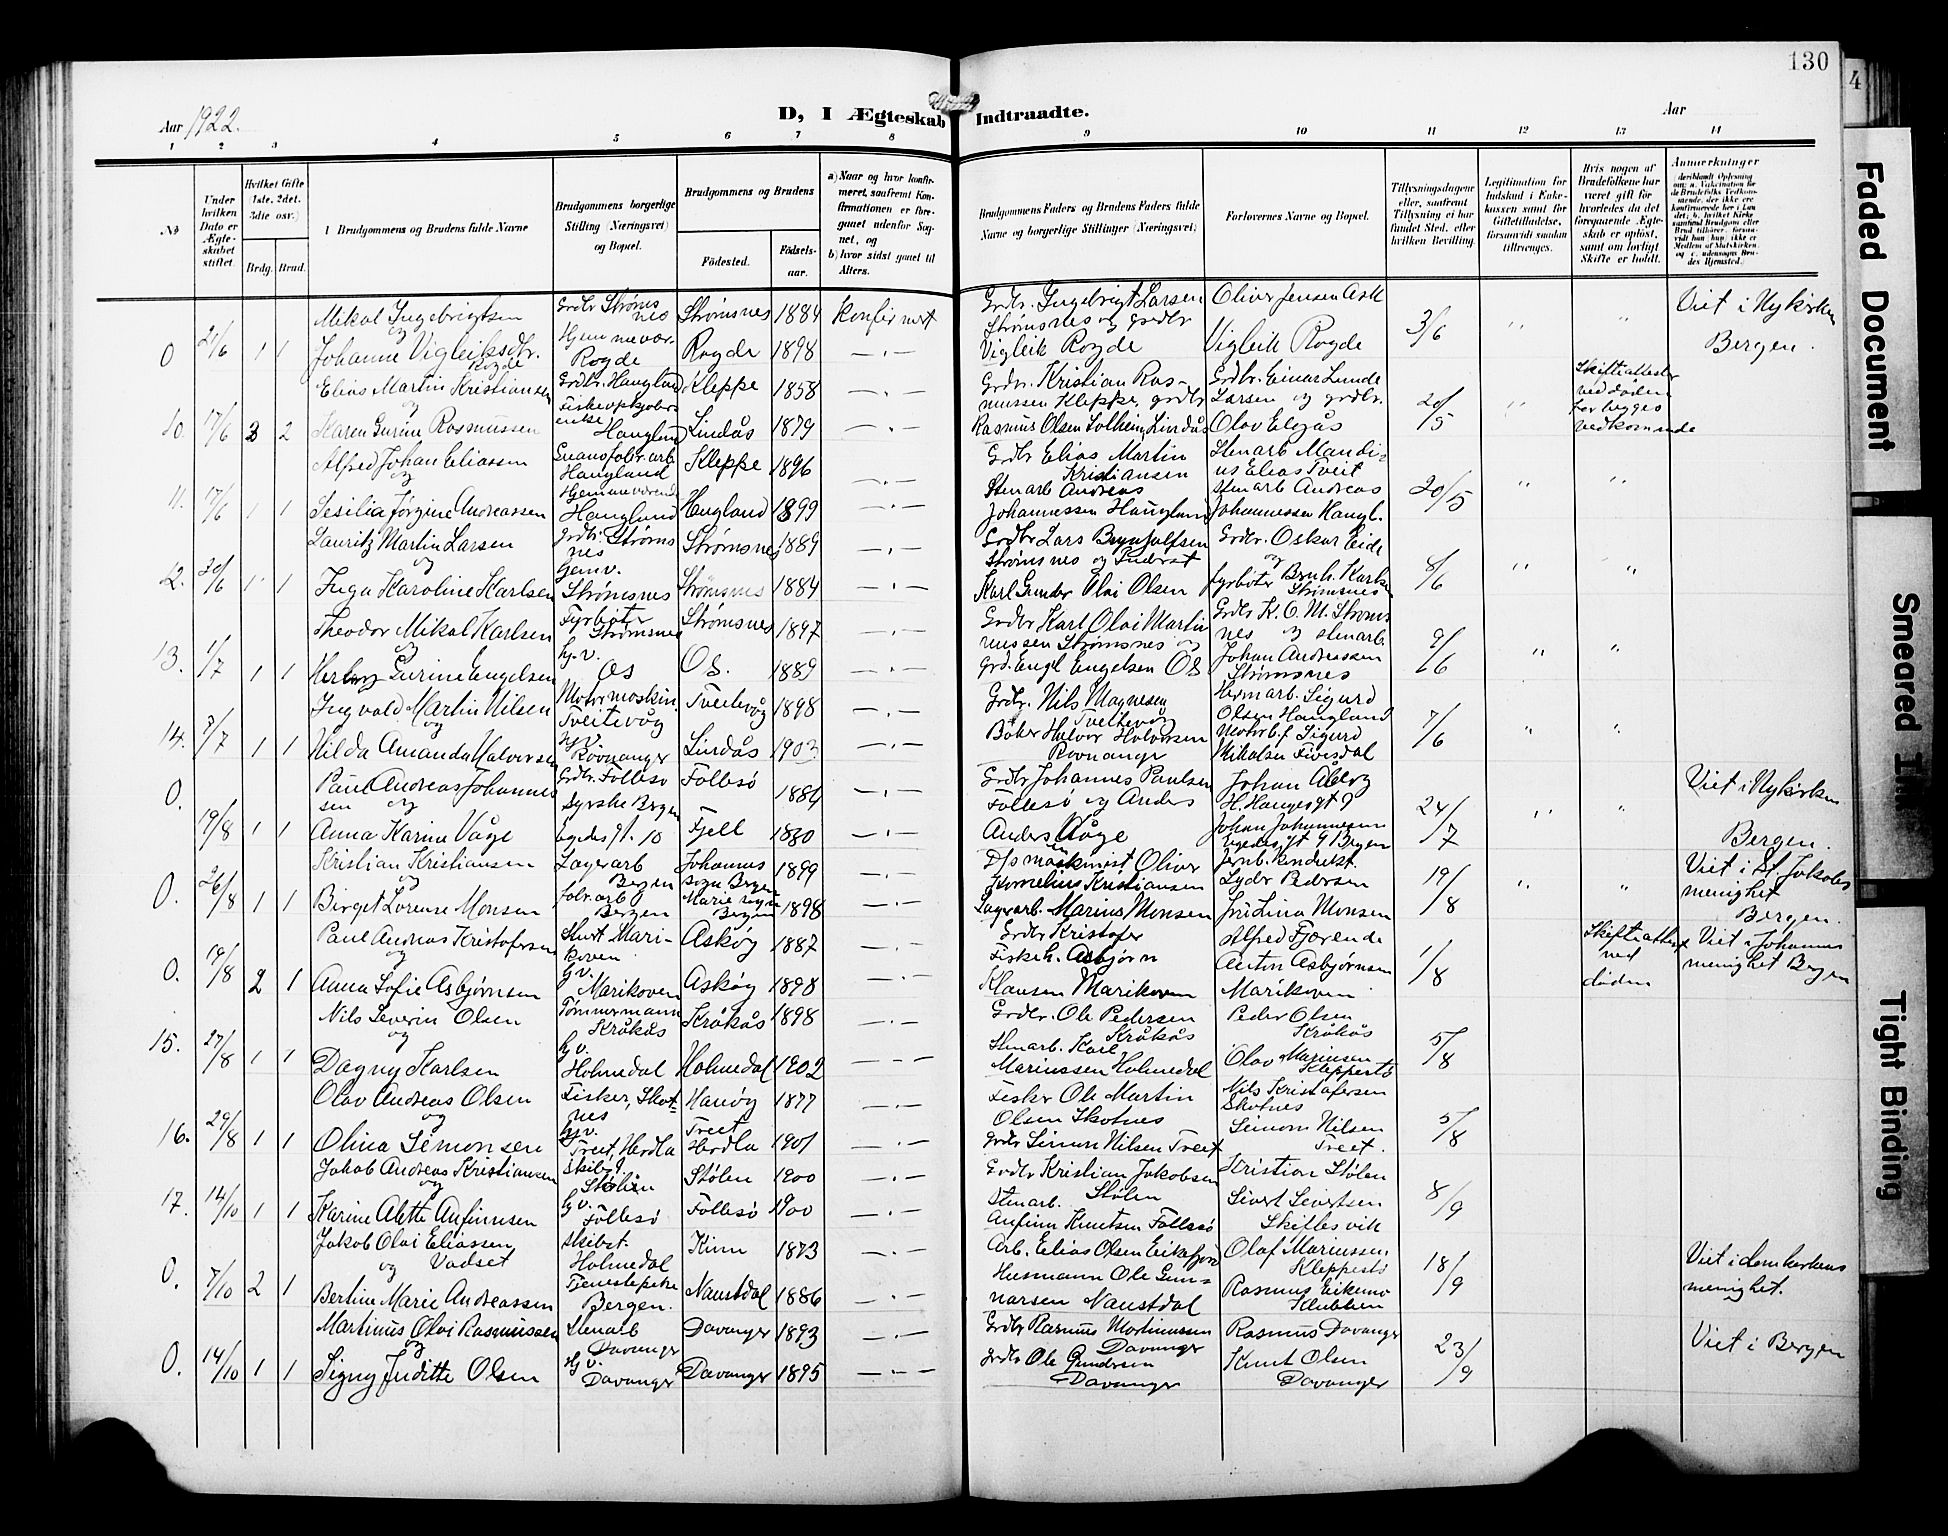 130
4
Aar 1922.
D, I Ægteskab Indtraadte.
Aar
1 2 3 4 5 6 7 8 9 10 11 12 13 14
No
Under hvilken Dato er Ægteskabet stiftet.
Hvilket Gifte 1ste. 2det. 3die osv.)
Brdg. Brud.
Brudgommens og Brudens fulde Navne
Brudgommens borgerlige Stilling (Næringsvei) og Bopæl.
Brudgommens og Brudens
Födested.
Födsels-aar.
a) Naar og hvor konfirmeret, saafremt Konfirmationen er foregaaet udenfor Sognet, og
b) hvor sidst gaaet til Alters.
Brudgommens Faders og Brudens Faders fulde Navne og borgerlige Stillinger (Næringsvei)
Forlovernes Navne og Bopæl.
Tillysningsdagene eller, saafremt Tillysning ei har fundet Sted, efter hvilken Bevilling.
Legitimation for Indskud i Enkekassen samt for Giftetilladelse, forsaavidt saadan tiltrænges.
Hvis nogen af Brudefolkene har været gift før hvorledes da det foregaaende Ægteskab er opløst, samt om lovligt Skifte er holdt.
Anmærkninger
O 21/6 1 1
Mikal Ingebrigtsen
og
Johanne Vigleiksdtr. Rogde
Grdbr Strømsnes
Hjemmevær. Rogde
Strømsnes 1884 konfirmert
Rogde 1898
Grdbr. Ingebrigt Larsen
Strømsnes og grdbr
Vigleik Rogde
Oliver Jensen Ask
Vigleik Rogde
3/6
Viet i Nykirken
Bergen.
10. 17/6 3 2
Elias Martin Kristiansen
og
Karen Gurine Rasmussen
Grdbr. Haugland
enke Haugland
Kleppe 1858
Lindås 1879
Grdbr. Kristian Ras-
mussen Kleppe, grdbr
Rasmus Olsen Solheim, Lindås
Grdbr. Einar Lunde
Larsen og grdbr.
Olav Elgås
20/5
Skifteattester
ved døden
for begges
vedkommende
11. 17/6 1 1
Alfred Johan Eliassen
og
Sesilia Jørgine Andreassen
Guanofabr. arb
Haugland
Hjemmeværende
Haugland
Kleppe 1896
Haugland 1899
Grdbr Elias Martin
Kristiansen
Stenarb Andreas
Johannessen Haugland
Stenarb Mandi-
us Elias Tveit
stenarb Andreas
Johannessen Haugl.
20/5
12. 30/6 1 1
Lauritz Martin Larsen
og
Inga Karoline Karlsen
Grdbr. Strømsnes
Hjemv.
Strømsnes
Strømsnes 1889
Strømsnes 1884
Grdbr Lars Brynjulfsen
Strømsnes og
Karl Olai Olsen
Grdbr. Oskar Eide
og
fyrbøter Bernh. Karlsen
Strømsnes
8/6
13. 1/7 1 1
Theodor Mikal Karlsen
og
Herborg Gurine Engelsen
Fyrbøter
Strømsnes
hj. v.
Os
Strømsnes 1897
Os. 1889
Grdbr Karl Olai Martin
nussen Strømsnes og
grd. Engel Engelsen Os
Grdbr K. O. M. Strøms
nes og stenarb.
Johan Andreassen
Strømsnes
9/6
14. 8/7 1 1
Ingvald Martin Nilsen
og
Hilda Amanda Halvorsen
Tveitevåg
hj.v.
Røvnanger
Tveitevåg 1898
Lindås 1903
Grdbr. Nils Magnesen
Tveitevåg
Bøker Halvor Halvorsen
Rovnanger
Sigurd
Olsen Haugland
Sigurd
Mikalsen
7/6
O. 19/8 1 1
Paul Andreas Johannes
sen og
Anna Karine Våge
Grdbr. Follesø
Syerske Bergen
Follesø 1884
Fjell 1880
Grdbr Johannes Paulsen
Follesø og Anders
Anders Våge
Johan Åberg
H. Haugesgt 9
Johan Johannesen
Egedesgt 9 Bergen
24/7
Viet i Nykirken
Bergen.
O. 26/8 1 1
Kristian Kristiansen
og
Birget Lorense Monsen
Lagerarb
Bergen
fabr. arb
Bergen
Johannes
sogn Bergen 1899
Marie sogn
Bergen 1898
D/s maskinist Oliver
Kornelius Kristiansen
Lagerarb. Marius Monsen
Lyder Pedersen
Frk Lina Monsen
19/8
Viet i St. Jakobs
menighet
Bergen.
O. 19/8 2 1
Paul Andreas Kristofersen
og
Anna Sofie Asbjørnsen
Marikoven
Askøy 1887
Askøy 1898
Grdbr Kristofer
Fiskeh. Asbjørn
Klausen Marikoven
Alfred Fjørende
Anton Asbjørnsen
Marikoven
1/8
Skifteattest
ved
døden
Viet i Johannes
menighet Bergen
15. 27/8 1 1
Nils Severin Olsen
og
Dagny Karlsen
Tømmermann
Kråkås
hj v.
Holmedal
Kråkås 1898
Holmedal 1902
Grdbr. Ole Pedersen
Kråkås
Stenarb. Karl
Mariussen Holmedal
Peder Olsen
Kråkås
Olav Mariussen
Kleppestø
5/8
16. 29/8 1 1
Olav Andreas Olsen
og
Olina Simonsen
Fisker, Skotnes
hjv.
Treet, Herdla
Hanøy 1877
Treet
Herdla 1901
Fisker Ole Martin
Olsen Skotnes
grdbr Simon Nilsen Treet
Nils Kristofersen
Skotnes
Simon Nilsen
Treet.
5/8
17. 14/10 1 1
Jakob Andreas Kristiansen
og
Karine Alette Anfinnsen
Stølen
hj v.
Follesø
Stølen 1900
Follesø 1900
Grdbr Kristian Jakobsen
Stølen
Stenarb.
Anfinn Knutsen Follesø
Kristian Stølen
Sivert Sivertsen
Skiftesvik
8/9
O. 7/10 2 1
Jakob Olai Eliassen
og Vadset
Bertine Marie Andreassen
Holmedal
Tjenestepike
Bergen.
Kinn 1873
Naustdal 1886
Arb. Elias Olsen Eikefjord
Husmann Ole Gun-
narsen Naustdal
Olaf Mariussen
Kleppestø
Rasmus Eikemo
Klubben
18/9
Viet i domkirkens
menighet.
O. 14/10 1 1
Martinus Olai Rasmussen
og
Signy Juditte Olsen
Stenarb
Davanger
Hj v.
Davanger
Davanger 1893
Davanger 1895
Grdbr Rasmus Martinussen
Davanger
grdbr Ole Gundersen
Davanger
Rasmus Davanger
Knut Olsen
Davanger
23/9
Viet i Bergen
Faded Document
Smeared Ink
Tight Binding